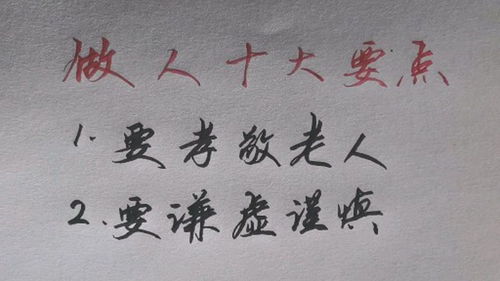 做人十大要点
1.要孝敬老人
2.要谦虚谨慎